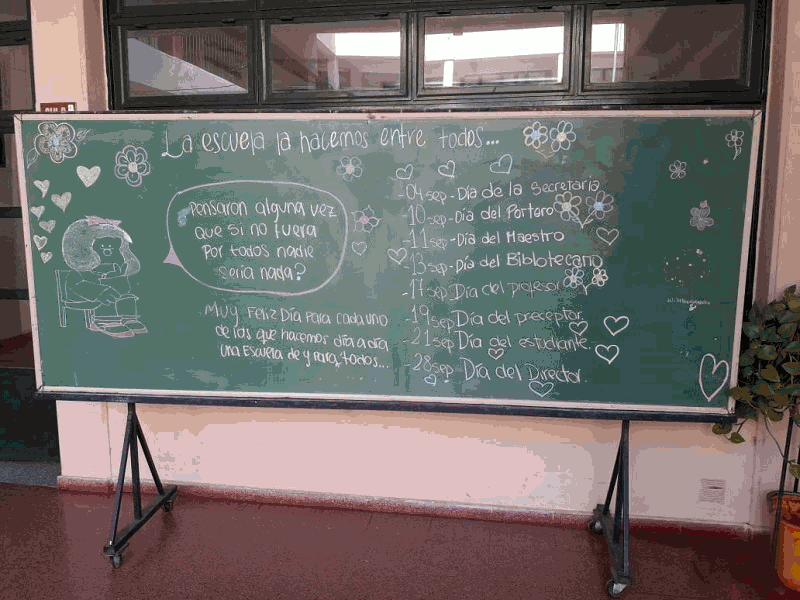 La escuela la hacemos entre todos...
Pensaron alguna vez
que si no fuera
por todos nadie
sería nada?
Muy Feliz Día para cada uno
de los que hacemos día a día
una Escuela de y para todos...
-04 sep - Día de la secretaria
-10 sep - Día del Portero
-11 sep - Día del Maestro
-13 sep - Día del Bibliotecario
-17 sep Día del profesor
-19 sep Día del preceptor
-21 sep Día del estudiante
-28 sep Día del Director